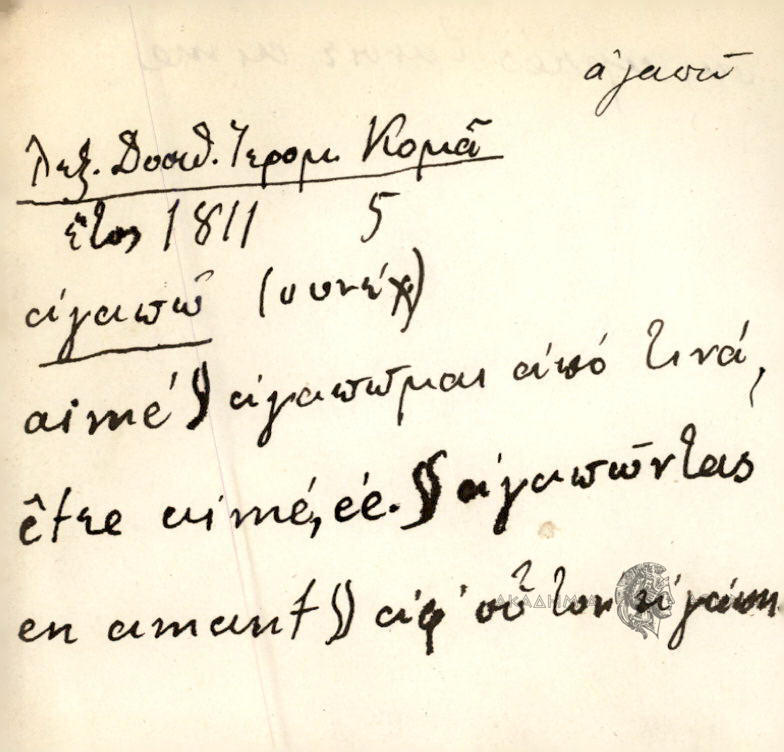 ἀγαπῶ
Λεξ. Δοσιθ. Ἱερομ. Κομᾶ
ἔτος 1811 5
ἀγαπῶ (συνέχ)
aimé § ἀγαπῶμαι ἀπό τινά,
être aimé, ée. § ἀγαπῶντας
en amant § ἀφ' οὗ τον ἠγάπη
ΑΚΑΔΗΜΙΑ